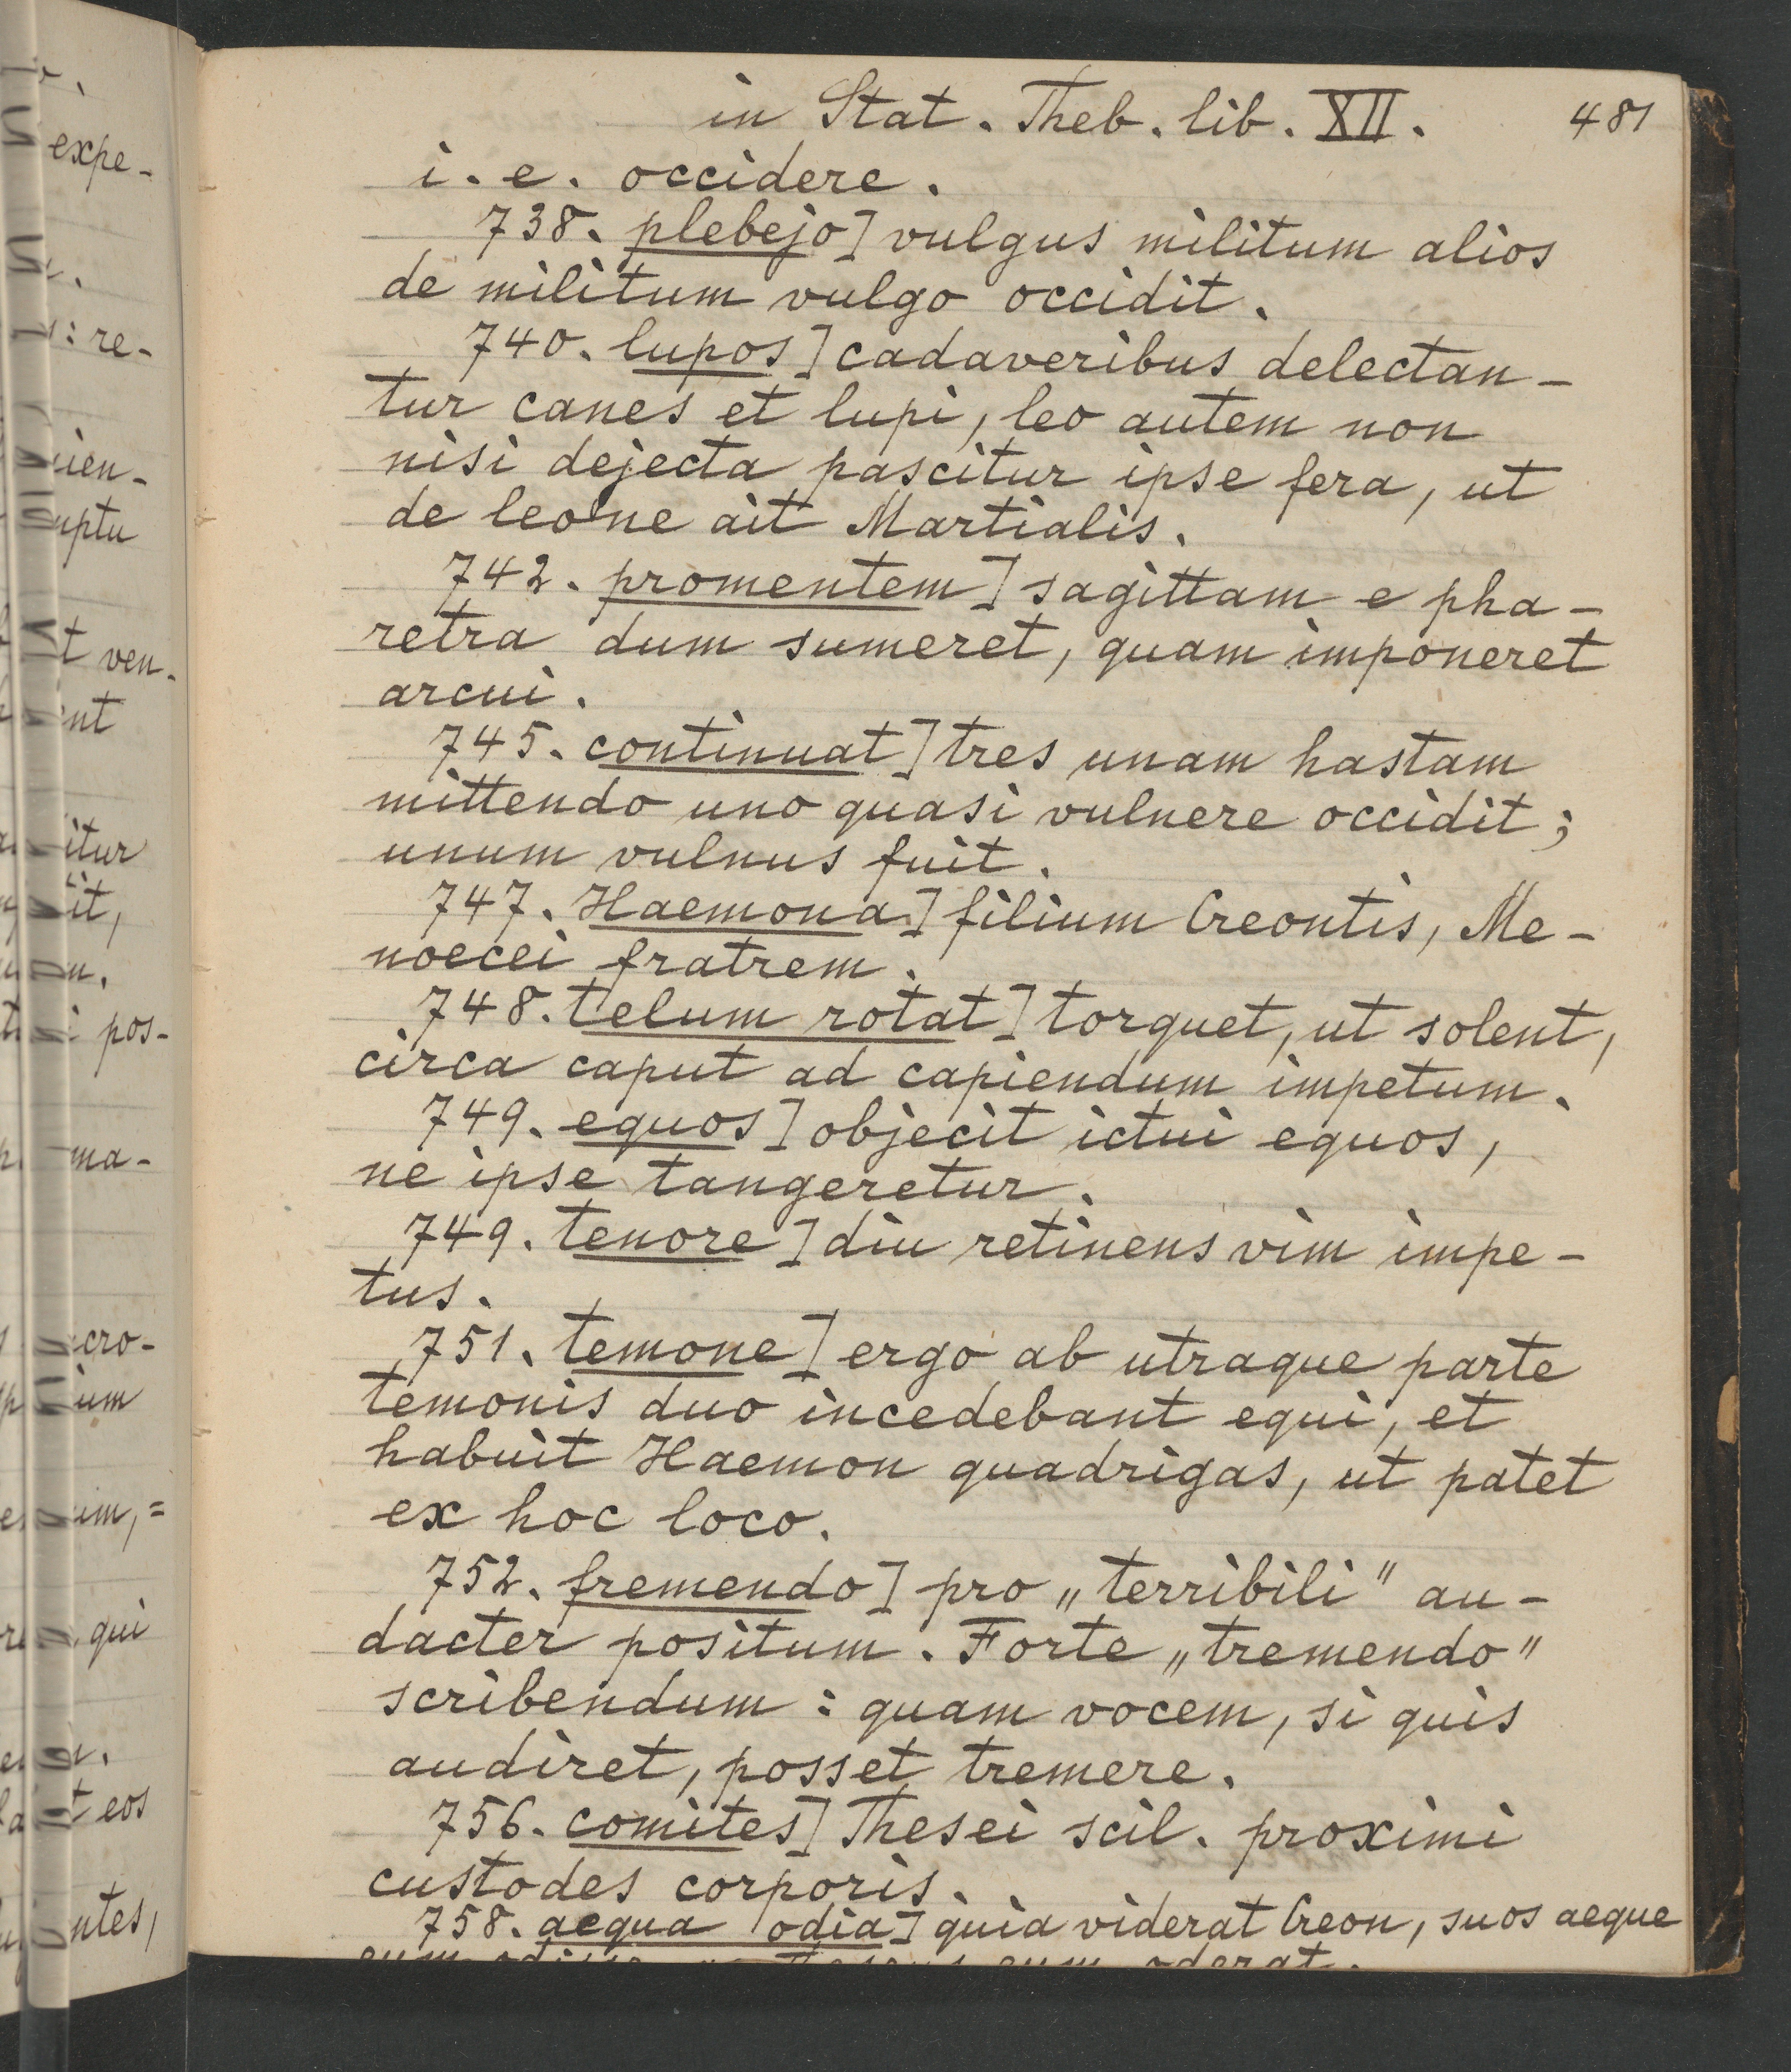 in Stat. Theb. lib. XII. 481
i. e. occidere.
738. plebejo] vulgus militum alios
de militum vulgo occidit.
740. lupos] cadaveribus delectan-
tur canes et lupi, leo autem non
nisi dejecta pascitur ipse fera, ut
de leone ait Martialis.
742. promentem] sagittam e pha-
retra dum sumeret, quam imponeret
arcui.
745. continuat] tres unam hastam
mittendo uno quasi vulnere occidit;
unum vulnus fuit.
747. Haemona] filium Creontis, Me-
noecei fratrem.
748. telum rotat] torquet, ut solent,
circa caput ad capiendum impetum.
749. equos] objecit ictui equos,
ne ipse tangeretur.
749. tenore] diu retinens vim impe-
tus.
751. temone] ergo ab utraque parte
temonis duo incedebant equi, et
habuit Haemon quadrigas, ut patet
ex hoc loco.
752. fremendo] pro „terribili" au-
dacter positum. Forte „tremendo"
scribendum: quam vocem, si quis
audiret, posset tremere.
756. comites] Thesei scil. proximi
custodes corporis.
758. aequa odia] quia viderat Creon, suos aeque
eum oderat.
expe-
: re-
ven.
pos-
ma-
qui
eos